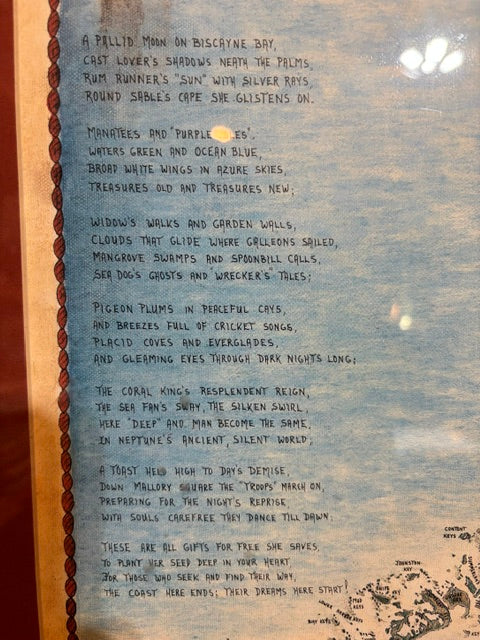 A PALLID MOON ON BISCAYNE BAY,
CAST LOVER'S SHADOWS NEATH THE PALMS,
RUM RUNNER'S "SUN" WITH SILVER RAYS,
ROUND SABLE'S CAPE SHE GLISTENS ON.
MANATEES AND "PURPLE ES".
WATERS GREEN AND OCEAN BLUE,
BROAD WHITE WINGS IN AZURE SKIES,
TREASURES OLD AND TREASURES NEW;
WIDOW'S WALKS AND GARDEN WALLS,
CLOUDS THAT GLIDE WHERE GALLEONS SAILED,
MANGROVE SWAMPS AND SPOONBILL CALLS,
SEA DOGS GHOSTS AND "WRECKER'S" TALES;
PIGEON PLUMS IN PEACEFUL CAYS,
AND BREEZES FULL OF CRICKET SONGS,
PLACID COVES AND EVERGLADES,
AND GLEAMING EYES THROUGH DARK NIGHTS LONG;
THE CORAL KING'S RESPLENDENT REIGN,
THE SEA FAN'S SWAY, THE SILKEN SWIRL,
HERE "DEEP" AND MAN BECOME THE SAME,
IN NEPTUNE'S ANCIENT, SILENT WORLD;
A TOAST HELD HIGH TO DAY'S DEMISE,
DOWN MALLORY SQUARE THE "TROOPS" MARCH ON,
PREPARING FOR THE NIGHT'S REPRISE,
WITH SOULS CAREFREE THEY DANCE TILL DAWN;
THESE ARE ALL GIFTS FOR FREE SHE SAVES,
TO PLANT HER SEED DEEP IN YOUR HEART,
FOR THOSE WHO SEEK AND FIND THEIR WAY,
THE COAST HERE ENDS; THEIR DREAMS HERE START!
CONTENT
KEYS
JOHNSTON
KEY
MUD
KEYS